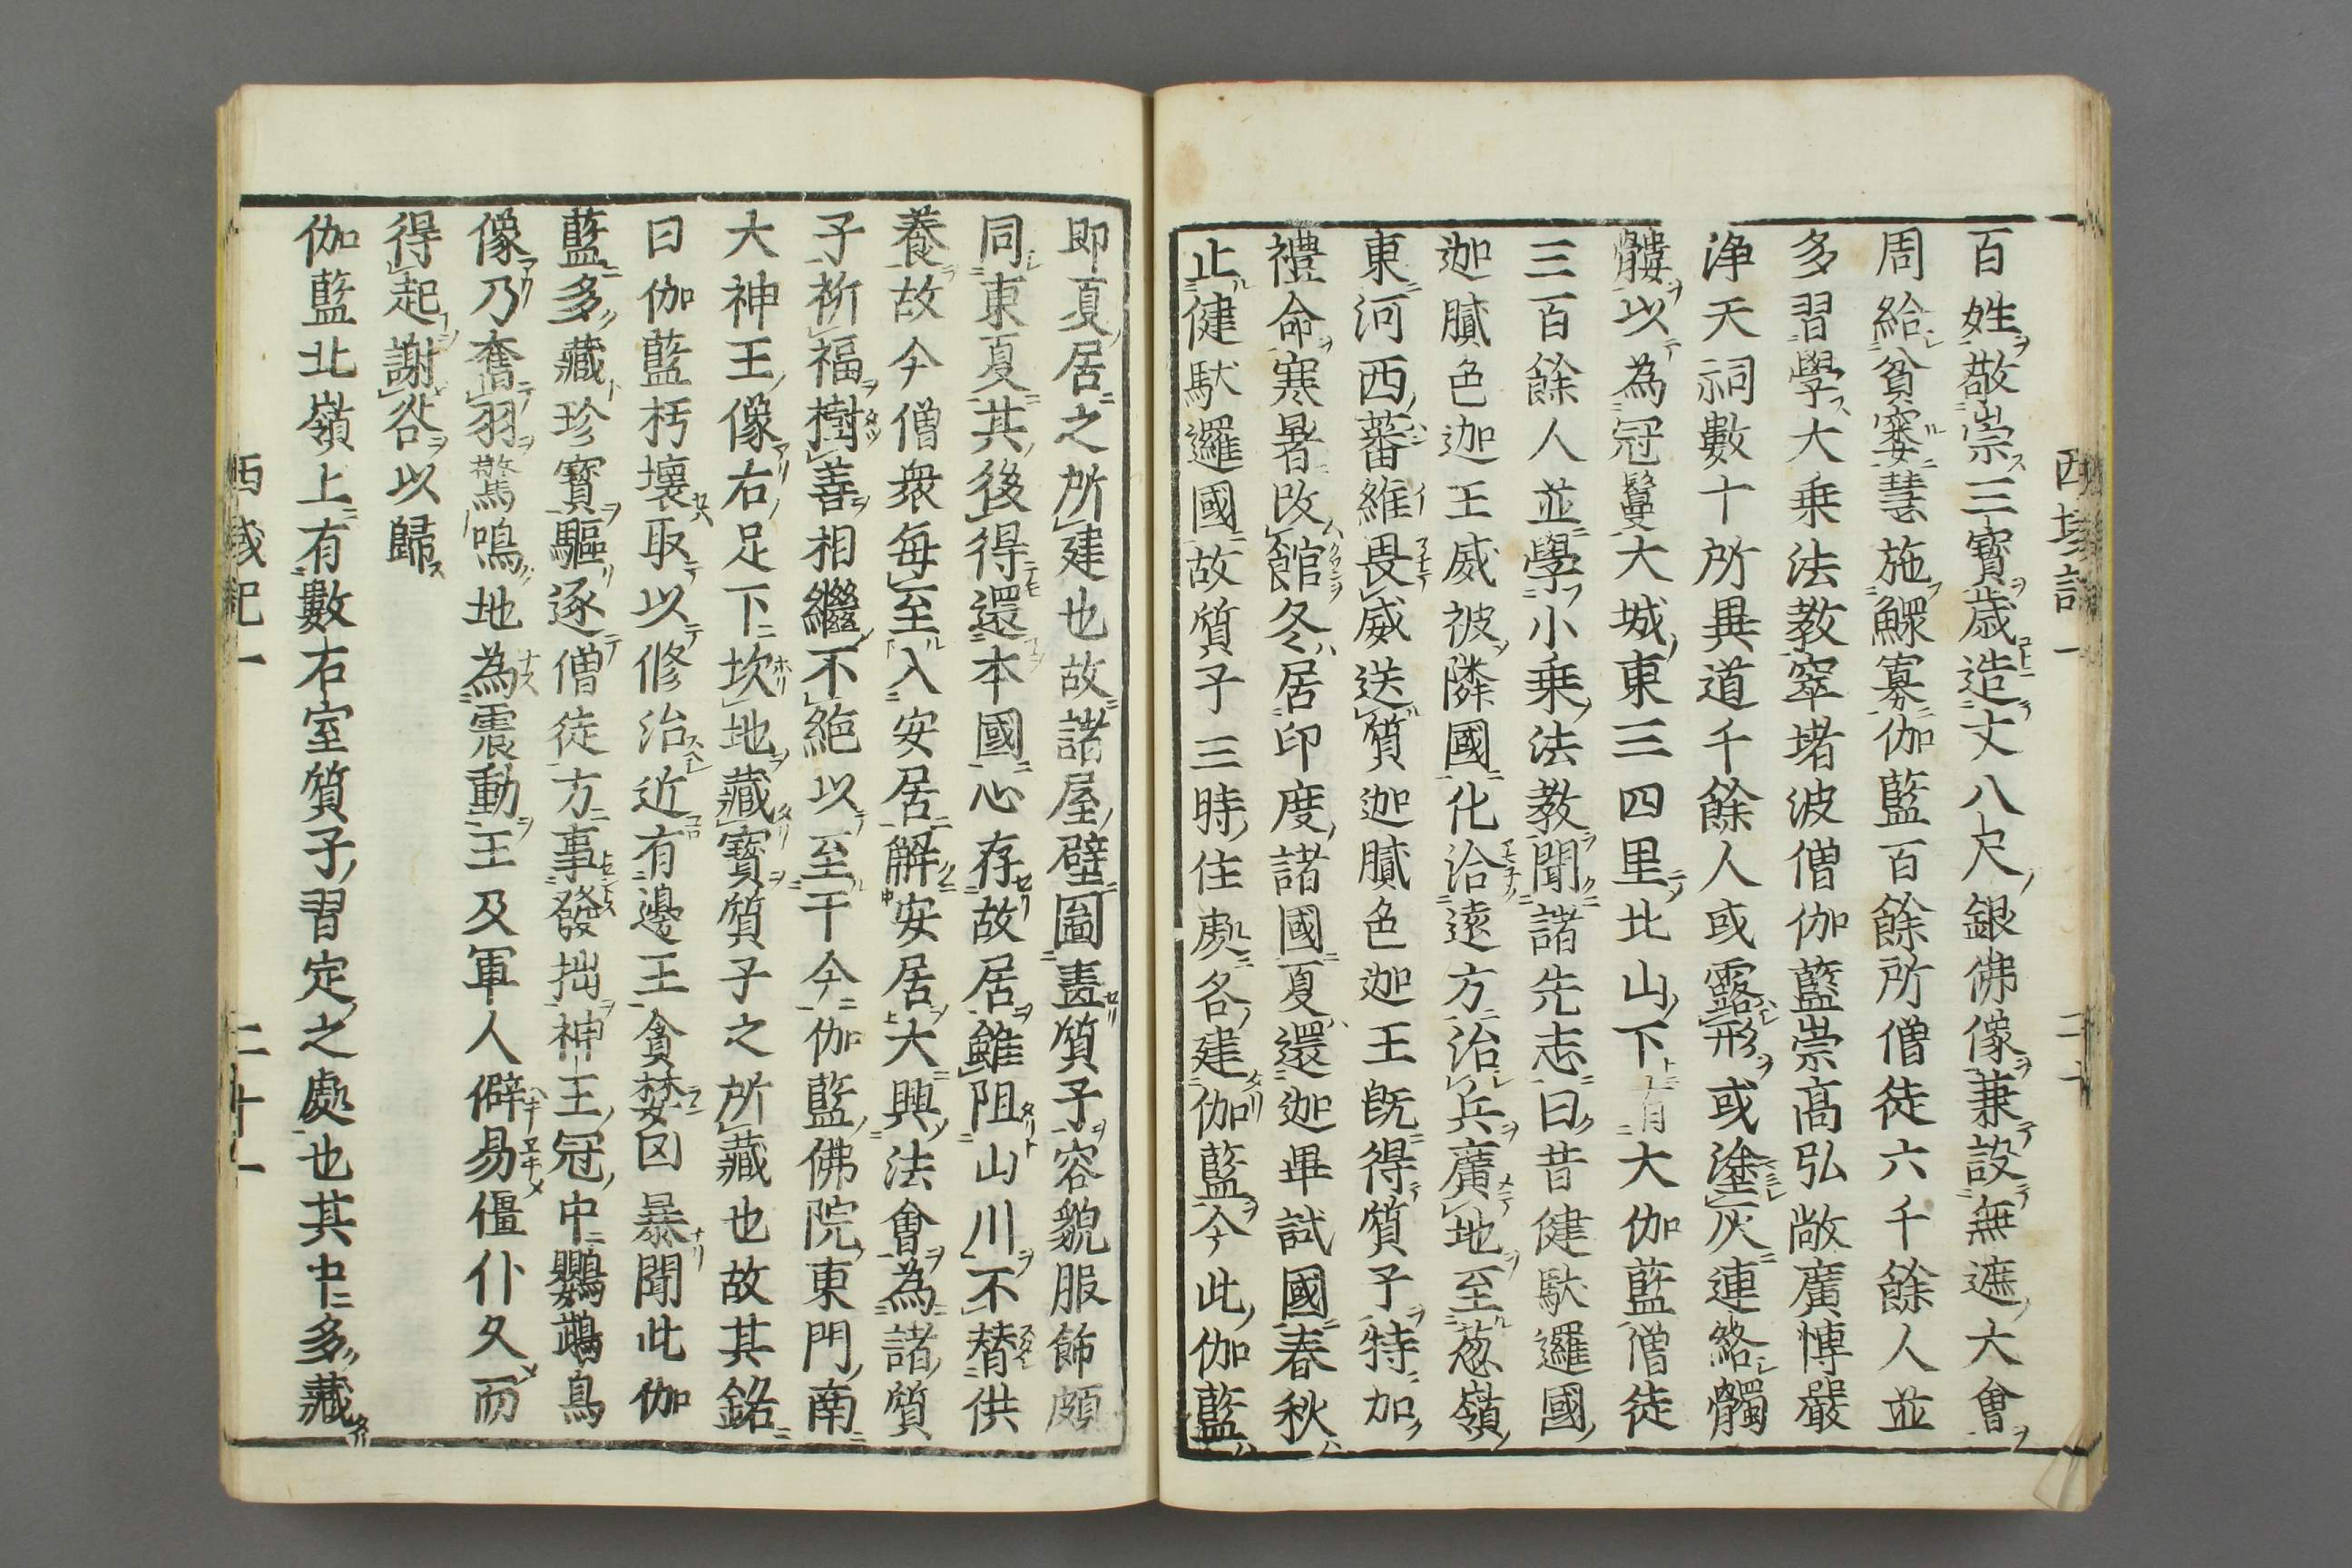 百姓敬崇三寶歲造丈八尺銀佛像兼設無遮大會
周給貧窶惠施鰥寡伽藍百餘所僧徒六千餘人並
多習學大乗法教窣堵波僧伽藍崇髙弘敞廣博嚴
淨天祠數十所異道千餘人或露形或塗灰連絡髑
髏以為冠鬘大城東三四里北山下有大伽藍僧徒
三百餘人並學小乗法教聞諸先志曰昔健馱邏國
迦膩色迦王威被隣國化洽遠方治兵廣地至葱嶺
東河西蕃維畏威送質迦膩色迦王既得質子特加
禮命寒暑改館冬居印度諸國夏還迦畢試國春秋
止健馱邏國故質子三時住處各建伽藍今此伽藍
西域記一
即夏居之所建也故諸屋壁圖畫質子容貌服飾頗
同東夏其後得還本國心存故居雖阻山川不替供
養故今僧衆每至入安居解安居大興法會為諸質
子祈福樹善相繼不絶以至于今伽藍佛院東門南
大神王像右足下坎地藏寶質子之所藏也故其銘
曰伽藍朽壞取以修治近有邊王貪婪凶暴聞此伽
藍多藏珍寶驅逐僧徒方事發掘神王冠中鸚鵡鳥
像乃奮羽驚鳴地為震動王及軍人僻易僵仆久而
得起謝咎以歸
伽藍北嶺上有數石室質子習定之處也其中多藏
西域記一
二十一